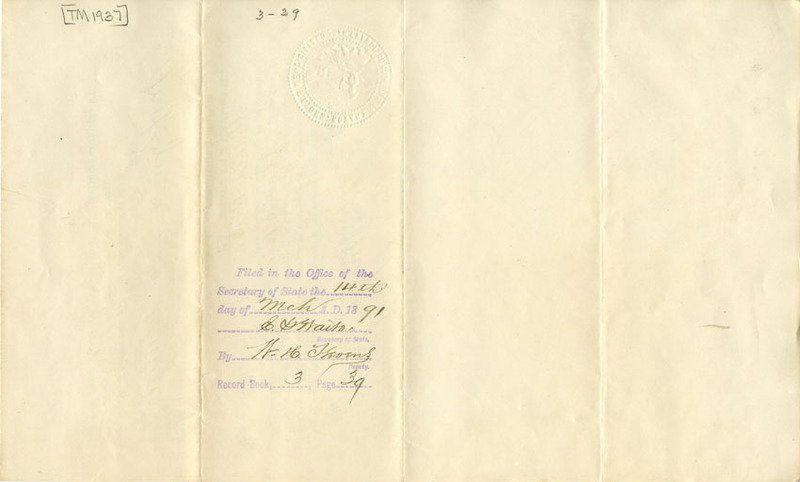 [TM 1937]
3-39
Filed in the Office of the
Secretary of State the 14th
day of Mch A. D. 18 91
E. G. Waite
Secretary of State.
By W. H. Stevens
Deputy.
Record Book, 3, Page 39